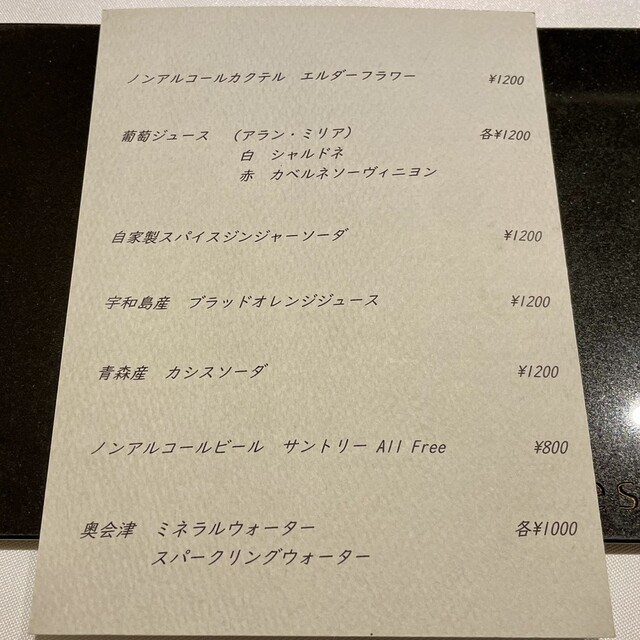 ノンアルコールカクテル　エルダーフラワー　¥1200
葡萄ジュース　（アラン・ミリア）　各¥1200
白　シャルドネ
赤　カベルネソーヴィニヨン
自家製スパイスジンジャーソーダ　¥1200
宇和島産　ブラッドオレンジジュース　¥1200
青森産　カシスソーダ　¥1200
ノンアルコールビール　サントリー All Free　¥800
奥会津　ミネラルウォーター　各¥1000
スパークリングウォーター